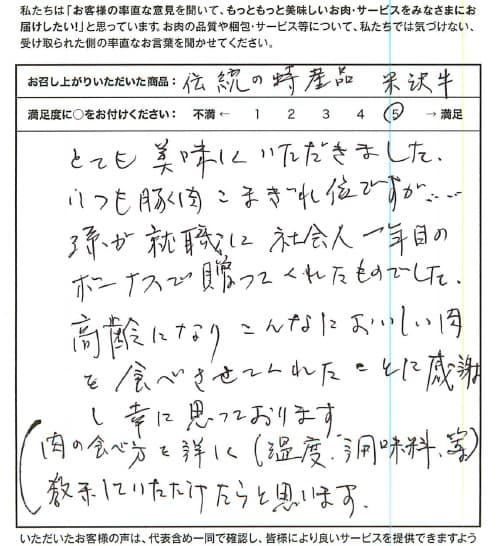 私たちは「お客様の率直な意見を聞いて、もっともっと美味しいお肉・サービスをみなさまにお
届けしたい！」と思っています。お肉の品質や梱包・サービス等について、私たちでは気づけない、
受け取られた側の率直なお言葉を聞かせてください。
お召し上がりいただいた商品： 伝統の特産品 米沢牛
満足度に○をお付けください： 不満 ← 1 2 3 4 5 → 満足
とても美味しくいただきました.
いつも豚肉こまぎれ位ですが……
孫が就職に社会人一年目の
ボーナスで贈ってくれたものでした.
高齢になりこんなにおいしい肉
を食べさせてくれたことに感謝
し幸に思っております
(肉の食べ方を詳しく(温度、調味料、等)
教示していただけたらと思います.
いただいたお客様の声は、代表含め一同で確認し、皆様により良いサービスを提供できますよう